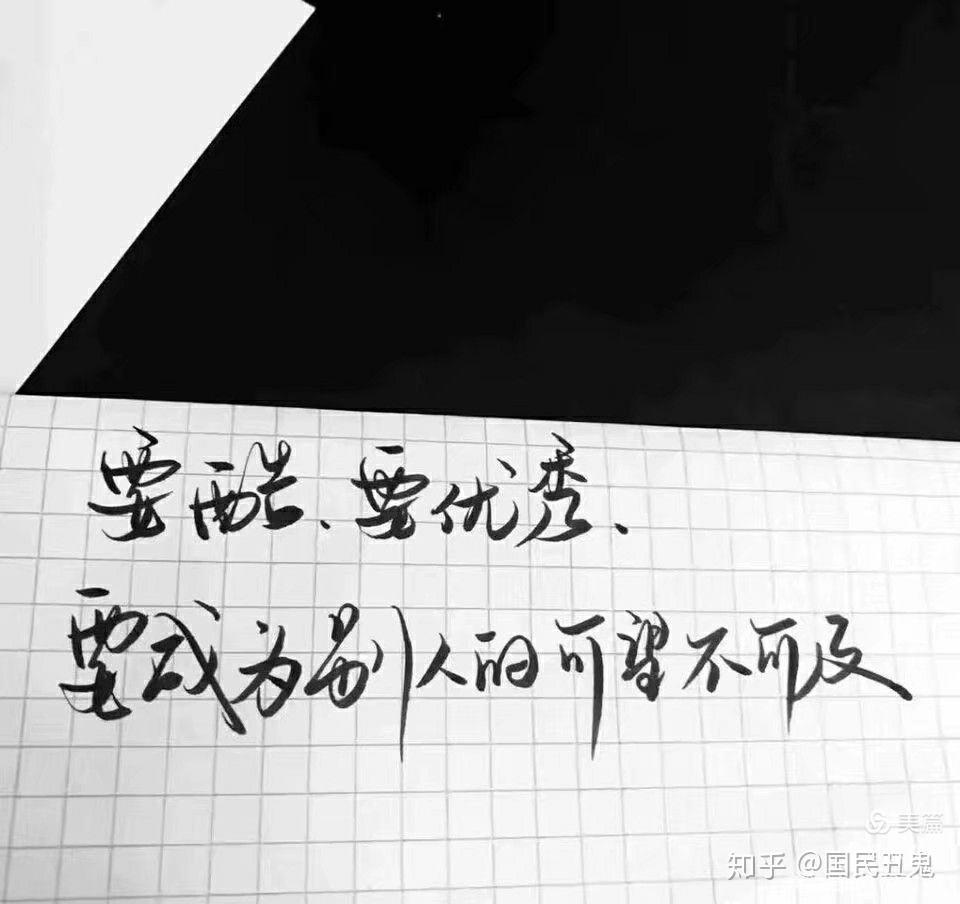 要酷、要优秀、
要成为别人的可望不可及
美篇
知乎 @国民丑鬼